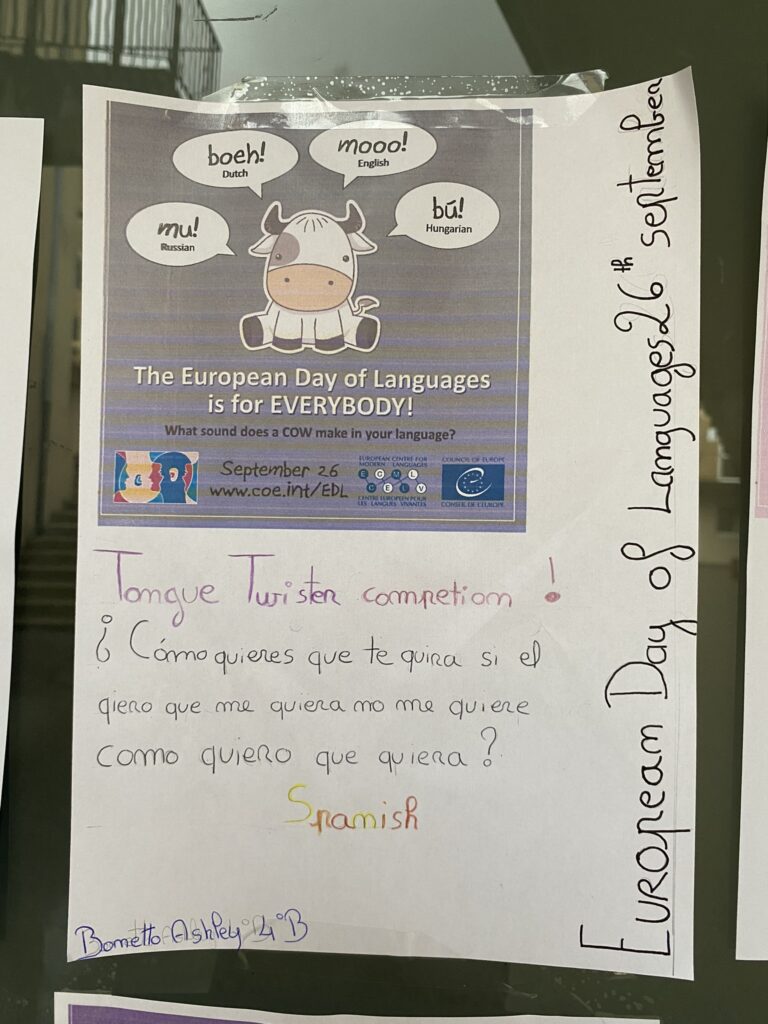 boeh!
Dutch
mooo!
English
mu!
Russian
bú!
Hungarian
The European Day of Languages
is for EVERYBODY!
What sound does a COW make in your language?
September 26
www.coe.int/EDL
EUROPEAN CENTRE FOR
MODERN LANGUAGES
E C M L
C E L V
CENTRE EUROPEEN POUR
LES LANGUES VIVANTES
COUNCIL OF EUROPE
CONSEIL DE L'EUROPE
Tongue Twister competion!
¿Cómo quieres que te quira si el
qiero que me quiera no me quiere
como quiero que quiera?
Spanish
Ashley 4°B
European Day of Languages 26th september